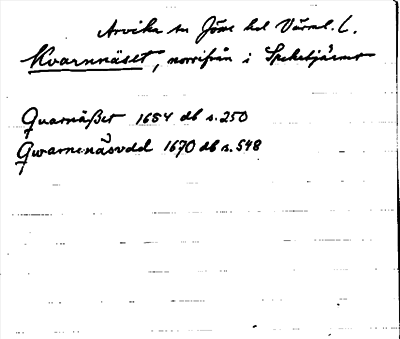 Arvika sn Jösse hd Värml. l.
Kvarnnäset, norrifrån i Speketjärnet
Quarnäßet 1654 db s. 250
Qwarnenäsodd 1670 db s. 548